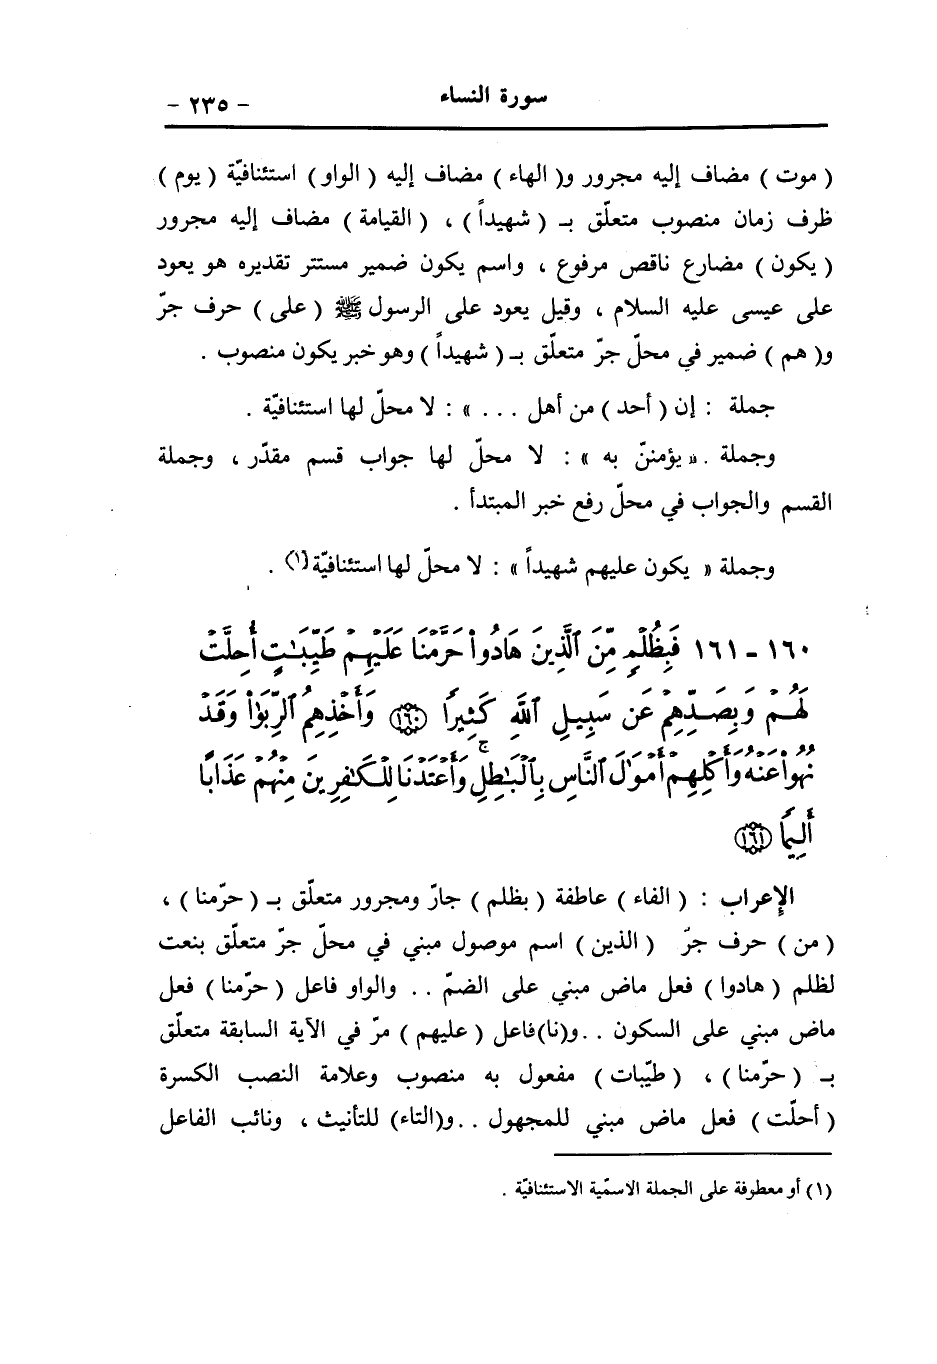 سورة النساء
- ٢٣٥ -
( موت ) مضاف إليه مجرور و( الهاء ) مضاف إليه ( الواو ) استئنافيّة ( يوم )
ظرف زمان منصوب متعلّق بـ ( شهيداً ) ، ( القيامة ) مضاف إليه مجرور
( يكون ) مضارع ناقص مرفوع ، واسم يكون ضمير مستتر تقديره هو يعود
على عيسى عليه السلام ، وقيل يعود على الرسول ﷺ ( على ) حرف جرّ
و( هم ) ضمير في محلّ جرّ متعلّق بـ ( شهيداً ) وهو خبر يكون منصوب .
جملة : إن ( أحد ) من أهل ... » : لا محلّ لها استئنافيّة .
وجملة .« يؤمننّ به » : لا محلّ لها جواب قسم مقدّر ، وجملة
القسم والجواب في محلّ رفع خبر المبتدأ .
وجملة « يكون عليهم شهيداً » : لا محلّ لها استئنافيّة (١) .
١٦٠ - ١٦١ فَبِظُلْمٍ مِّنَ ٱلَّذِينَ هَادُواْ حَرَّمْنَا عَلَيْهِمْ طَيِّبَٰتٍ أُحِلَّتْ
لَهُمْ وَبِصَدِّهِمْ عَن سَبِيلِ ٱللَّهِ كَثِيرًا ﴿١٦٠﴾ وَأَخْذِهِمُ ٱلرِّبَوٰاْ وَقَدْ
نُهُواْ عَنْهُ وَأَكْلِهِمْ أَمْوَٰلَ ٱلنَّاسِ بِٱلْبَٰطِلِ ۚ وَأَعْتَدْنَا لِلْكَٰفِرِينَ مِنْهُمْ عَذَابًا
أَلِيمًا ﴿١٦١﴾
الإعراب : ( الفاء ) عاطفة ( بظلم ) جارّ ومجرور متعلّق بـ ( حرّمنا ) ،
( من ) حرف جرّ ( الذين ) اسم موصول مبني في محلّ جرّ متعلّق بنعت
لظلم ( هادوا ) فعل ماض مبني على الضمّ .. والواو فاعل ( حرّمنا ) فعل
ماض مبني على السكون .. و(نا) فاعل ( عليهم ) مرّ في الآية السابقة متعلّق
بـ ( حرّمنا ) ، ( طيّبات ) مفعول به منصوب وعلامة النصب الكسرة
( أحلّت ) فعل ماض مبني للمجهول .. و(التاء) للتأنيث ، ونائب الفاعل
(١) أو معطوفة على الجملة الاسمّية الاستئنافيّة .